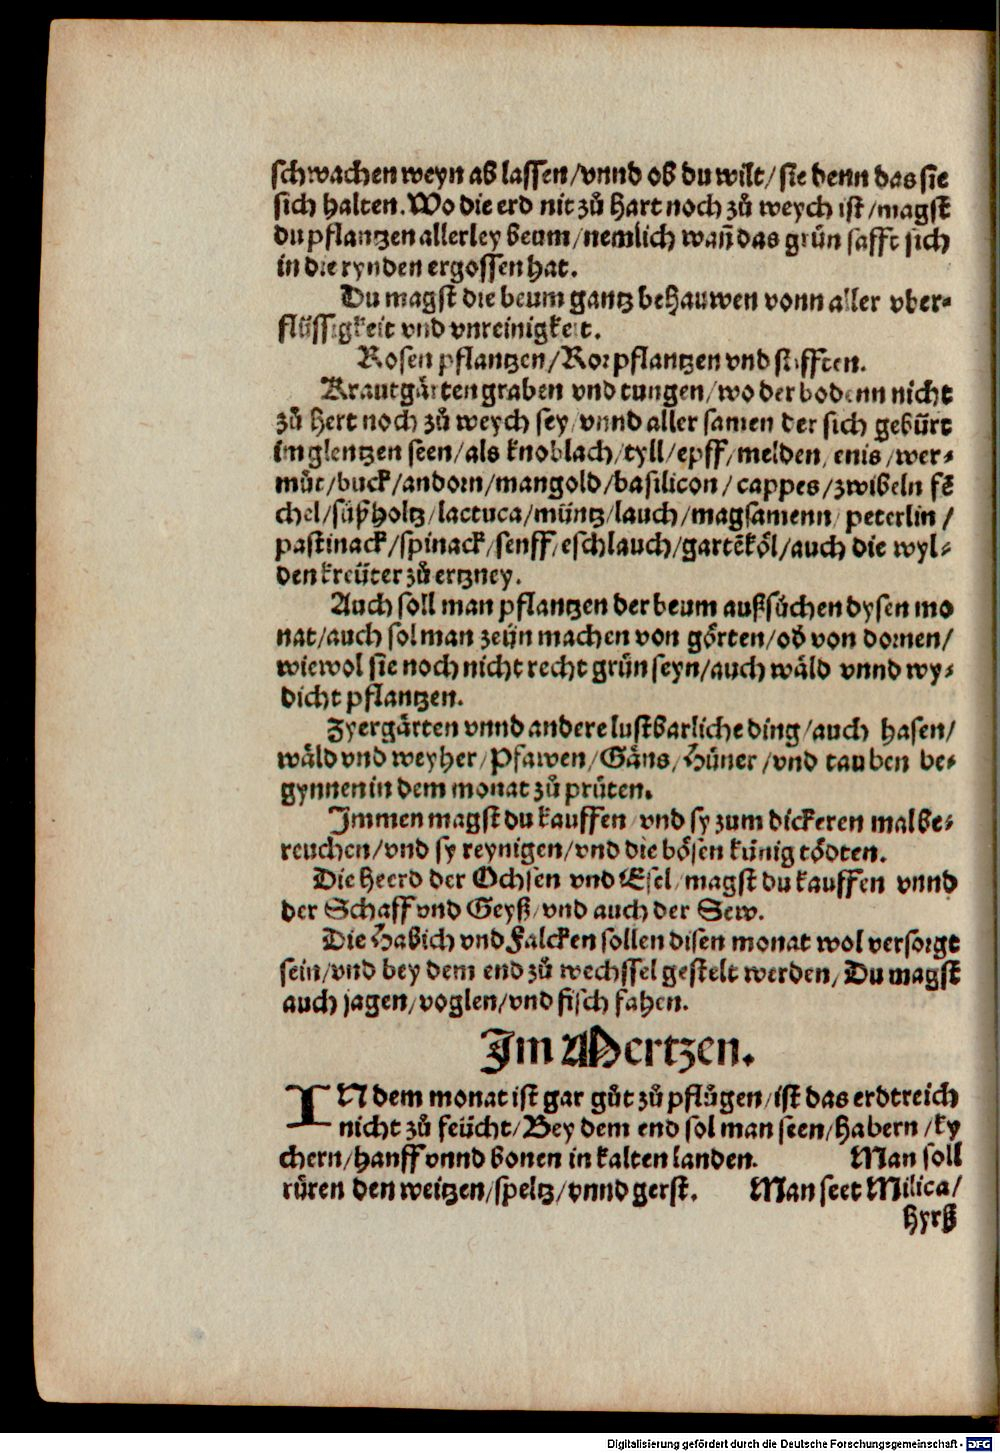 schwachen weyn ab lassen/vnnd ob du wilt/sie denn das sie
sich halten. Wo die erd nit zů hart noch zů weych ist/magst
du pflantzen allerley beum/nemlich wañ das grün safft sich
in die rynden ergossen hat.
Du magst die beum gantz behauwen vonn aller vber-
flüssigkeit vnd vnreinigkeit.
Rosen pflantzen/Ror pflantzen vnd stifften.
Krautgärten graben vnd tungen/wo der bodenn nicht
zů hert noch zů weych sey/vnnd aller samen der sich gebürt
im glentzen seen/als knoblach/tyll/epff/melden/enis/wer-
můt/buck/andorn/mangold/basilicon/cappes/zwibeln fē
chel/süßholtz/lactuca/müntz/lauch/magsamenn/peterlin/
pastinack/spinack/senff/eschlauch/gartēköl/auch die wyl-
den kreüter zů ertzney.
Auch soll man pflantzen der beum außsůchen dysen mo
nat/auch sol man zeün machen von görten/ob von dornen/
wiewol sie noch nicht recht grün seyn/auch wäld vnnd wy-
dicht pflantzen.
Zyergärten vnnd andere lustbarliche ding/auch hasen/
wäld vnd weyher/Pfawen/Gäns/Hüner/vnd tauben be-
gynnen in dem monat zů prüten.
Immen magst du kauffen vnd sy zum dickeren mal be-
reuchen/vnd sy reynigen/vnd die bösen künig tödten.
Die heerd der Ochsen vnd Esel/magst du kauffen vnnd
der Schaff vnd Geyß/vnd auch der Sew.
Die Habich vnd Falcken sollen disen monat wol versorgt
sein/vnd bey dem end zů wechssel gestelt werden/Du magst
auch jagen/voglen/vnd fisch fahen.
Im Mertzen.
IN dem monat ist gar gůt zů pflůgen/ist das erdtreich
nicht zů feücht/Bey dem end sol man seen/habern/ky
chern/hanff vnnd bonen in kalten landen. Man soll
rüren den weitzen/speltz/vnnd gerst. Man seet Milica/
hyrß
Digitalisierung gefördert durch die Deutsche Forschungsgemeinschaft - DFG